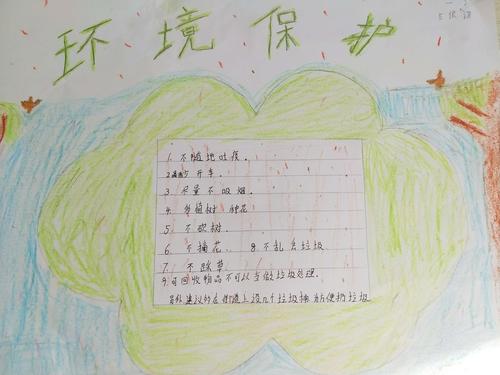 环境保护
1. 不随地吐痰.
2. 减少开车.
3 尽量不吸烟.
4. 多植树 种花
5 不砍树.
6. 不摘花. 8.不乱丢垃圾
7 不踩草.
9.可回收物品不可以当做垃圾处理.
建议的在街道上设几个垃圾桶方便扔垃圾